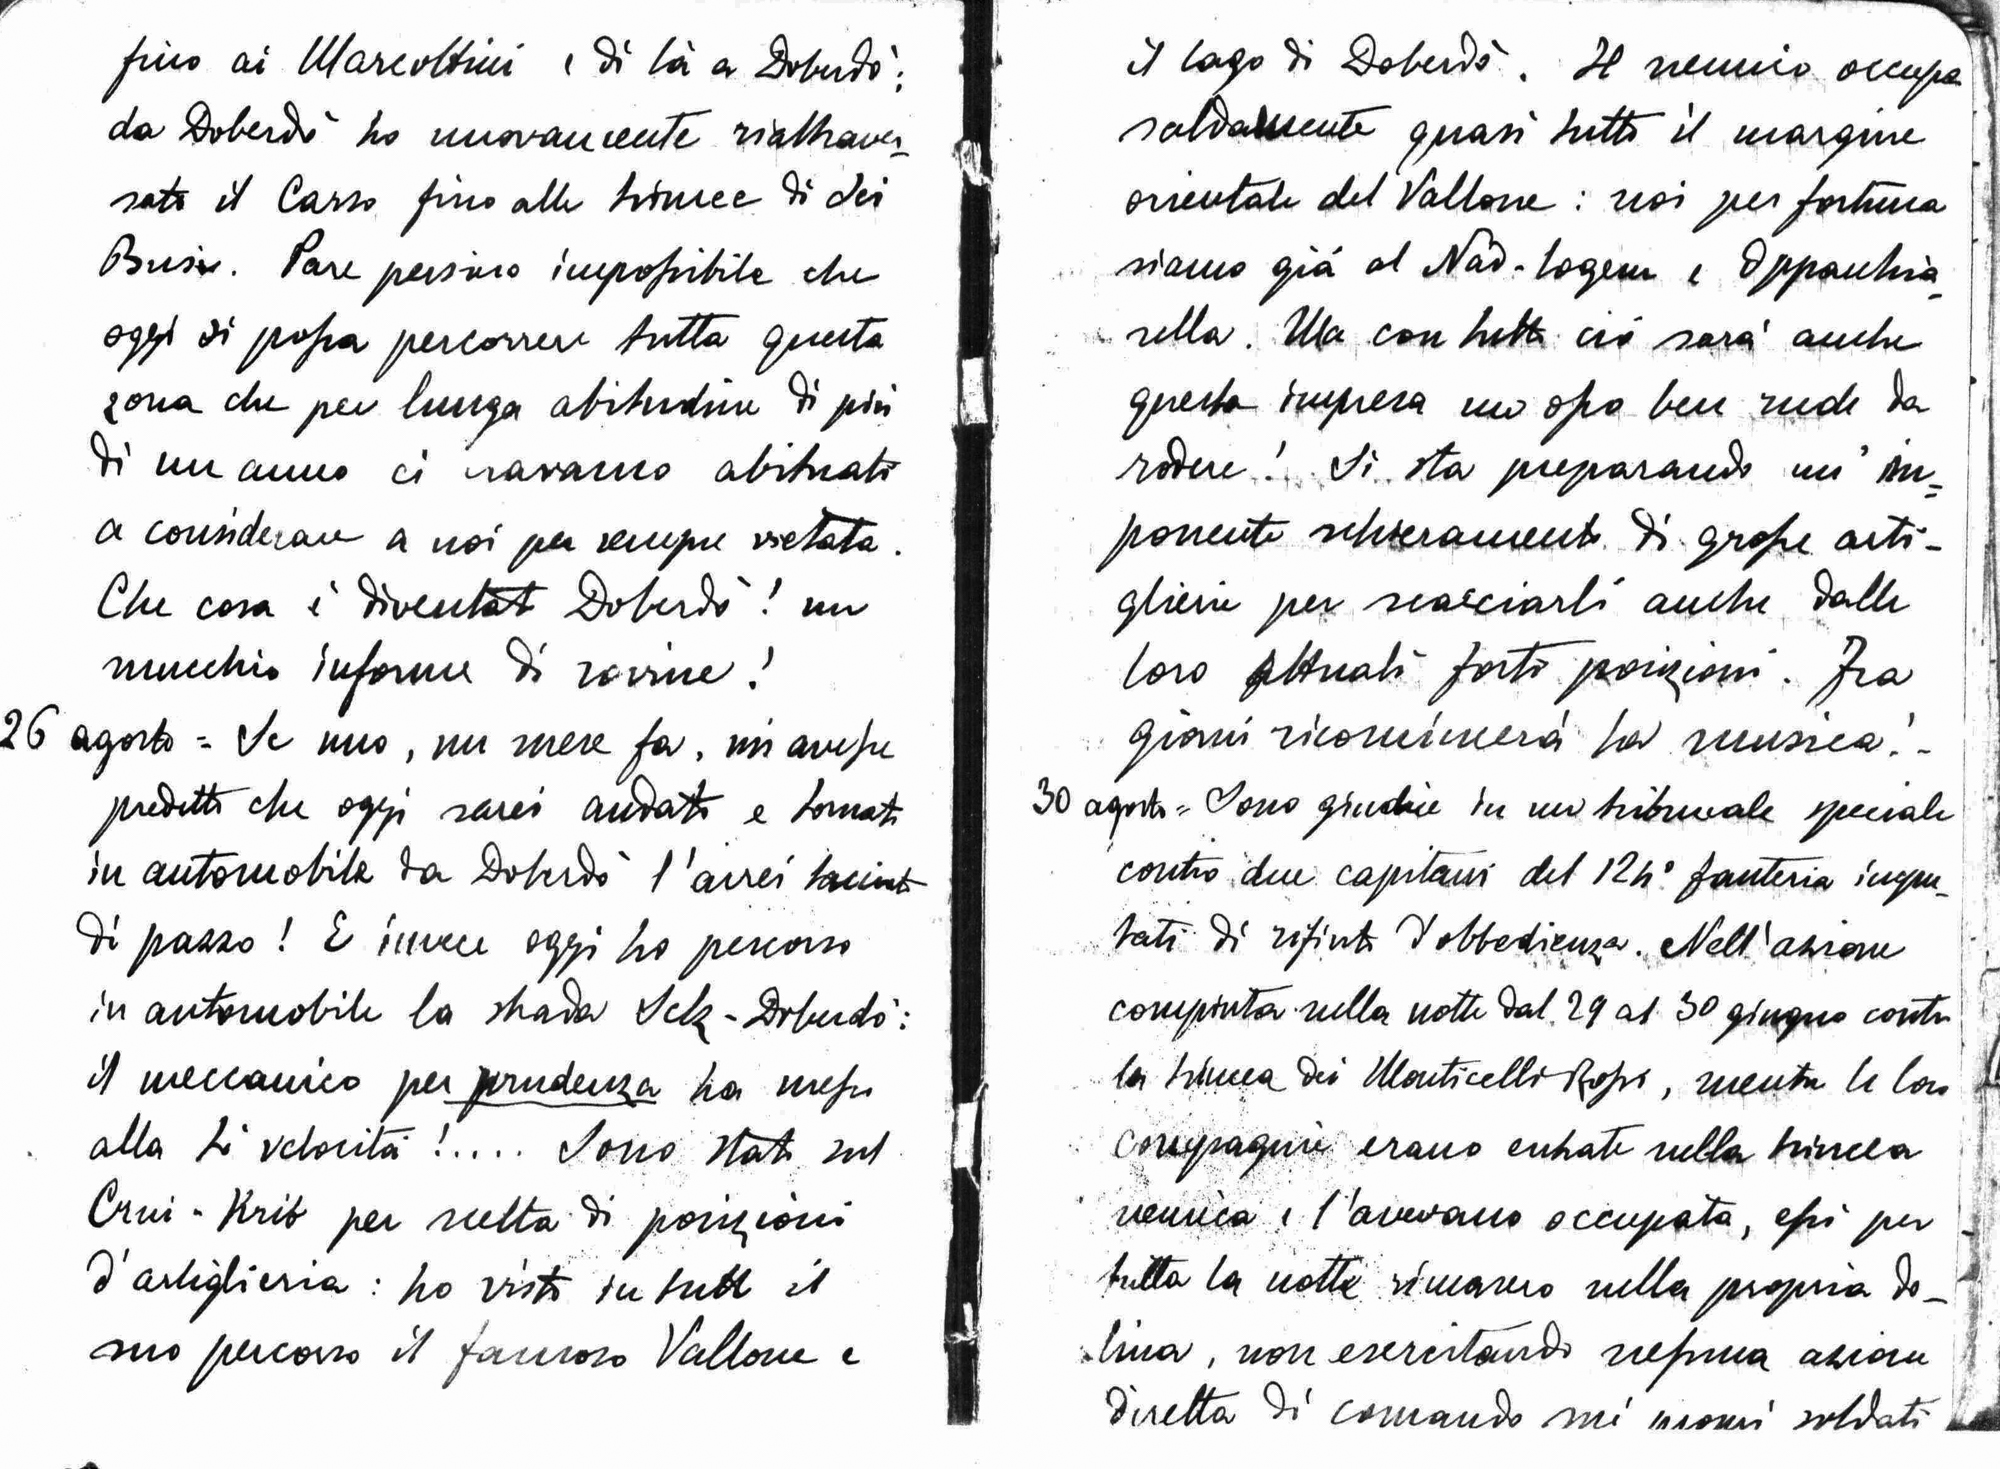 fino ai Marcottini e di là a Doberdò;
da Doberdò ho nuovamente riattraver=
sato il Carso fino alle trincee di Sei
Busi. Pare persino impossibile che
oggi si possa percorrere tutta questa
zona che per lunga abitudine di più
di un anno ci eravamo abituati
a considerare a noi per sempre vietata.
Che cosa è diventato Doberdò! un
mucchio informe di rovine!
26 agosto = Se uno, un mese fa, mi avesse
predetto che oggi sarei andato e tornato
in automobile da Doberdò l'avrei tacciato
di pazzo! E invece oggi ho percorso
in automobile la strada Selz-Doberdò:
il meccanico per prudenza ha messo
alla 3ª velocità!.... Sono stato sul
Crni-Krib per scelta di posizioni
d'artiglieria: ho visto in tutto il
suo percorso il famoso Vallone e
il lago di Doberdò. Il nemico occupa
saldamente quasi tutto il margine
orientale del Vallone: noi per fortuna
siamo già al Nad-Logem e Oppacchia=
sella. Ma con tutto ciò sarà anche
questa impresa un osso ben rude da
rodere! Si sta preparando un' im=
ponente schieramento di grosse arti-
glierie per scacciarli anche dalle
loro attuali forti posizioni. Fra
giorni ricomincerà la musica!-
30 agosto = Sono giudice in un tribunale speciale
contro due capitani del 124° fanteria impu=
tati di rifiuto d'obbedienza. Nell'azione
compiuta nella notte dal 29 al 30 giugno contro
la trincea dei Monticelli Rossi, mentre le loro
compagnie erano entrate nella trincea
nemica e l'avevano occupata, essi per
tutta la notte rimasero nella propria do-
lina, non esercitando nessuna azione
diretta di comando sui propri soldati